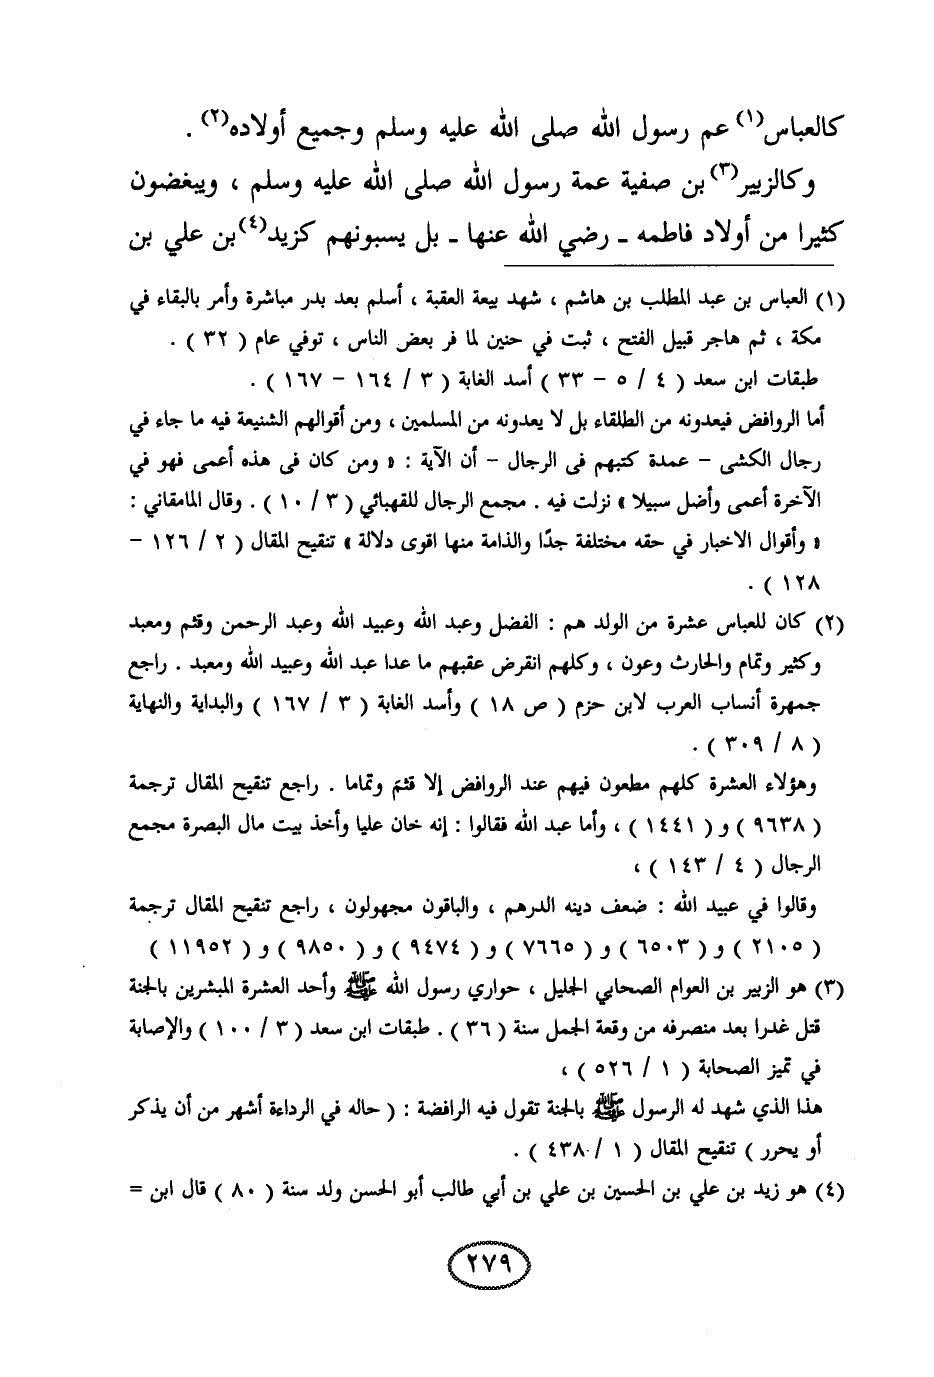 كالعباس(١) عم رسول الله صلى الله عليه وسلم وجميع أولاده(٢) .
وكالزبير(٣) بن صفية عمة رسول الله صلى الله عليه وسلم ، ويبغضون
كثيرا من أولاد فاطمه ـ رضي الله عنها ـ بل يسبونهم كزيد(٤) بن علي بن
(١) العباس بن عبد المطلب بن هاشم ، شهد بيعة العقبة ، أسلم بعد بدر مباشرة وأمر بالبقاء في
مكة ، ثم هاجر قبيل الفتح ، ثبت في حنين لما فر بعض الناس ، توفي عام ( ٣٢ ) .
طبقات ابن سعد ( ٤ / ٥ – ٣٣ ) أسد الغابة ( ٣ / ١٦٤ – ١٦٧ ) .
أما الروافض فيعدونه من الطلقاء بل لا يعدونه من المسلمين ، ومن أقوالهم الشنيعة فيه ما جاء في
رجال الكشى – عمدة كتبهم فى الرجال – أن الآية : « ومن كان فى هذه أعمى فهو في
الآخرة أعمى وأضل سبيلا » نزلت فيه . مجمع الرجال للقهبائي ( ٣ / ١٠ ) . وقال المامقاني :
« وأقوال الاخبار في حقه مختلفة جدًا والذامة منها اقوى دلالة » تنقيح المقال ( ٢ / ١٢٦ –
١٢٨ ) .
(٢) كان للعباس عشرة من الولد هم : الفضل وعبد الله وعبيد الله وعبد الرحمن وقثم ومعبد
وكثير وتمام والحارث وعون ، وكلهم انقرض عقبهم ما عدا عبد الله وعبيد الله ومعبد . راجع
جمهرة أنساب العرب لابن حزم ( ص ١٨ ) وأسد الغابة ( ٣ / ١٦٧ ) والبداية والنهاية
( ٨ / ٣٠٩ ) .
وهؤلاء العشرة كلهم مطعون فيهم عند الروافض إلا قثم وتماما . راجع تنقيح المقال ترجمة
( ٩٦٣٨ ) و ( ١٤٤١ ) ، وأما عبد الله فقالوا : إنه خان عليا وأخذ بيت مال البصرة مجمع
الرجال ( ٤ / ١٤٣ ) ،
وقالوا في عبيد الله : ضعف دينه الدرهم ، والباقون مجهولون ، راجع تنقيح المقال ترجمة
( ٢١٠٥ ) و ( ٦٥٠٣ ) و ( ٧٦٦٥ ) و ( ٩٤٧٤ ) و ( ٩٨٥٠ ) و ( ١١٩٥٢ )
(٣) هو الزبير بن العوام الصحابي الجليل ، حواري رسول الله ﷺ وأحد العشرة المبشرين بالجنة
قتل غدرا بعد منصرفه من وقعة الجمل سنة ( ٣٦ ) . طبقات ابن سعد ( ٣ / ١٠٠ ) والإصابة
في تميز الصحابة ( ١ / ٥٢٦ ) ،
هذا الذي شهد له الرسول ﷺ بالجنة تقول فيه الرافضة : ( حاله في الرداءة أشهر من أن يذكر
أو يحرر ) تنقيح المقال ( ١ / ٤٣٨ ) .
(٤) هو زيد بن علي بن الحسين بن علي بن أبي طالب أبو الحسن ولد سنة ( ٨٠ ) قال ابن =
٢٧٩